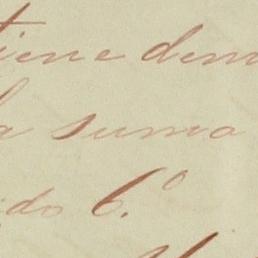 tiene dem
la suma
do 6.º